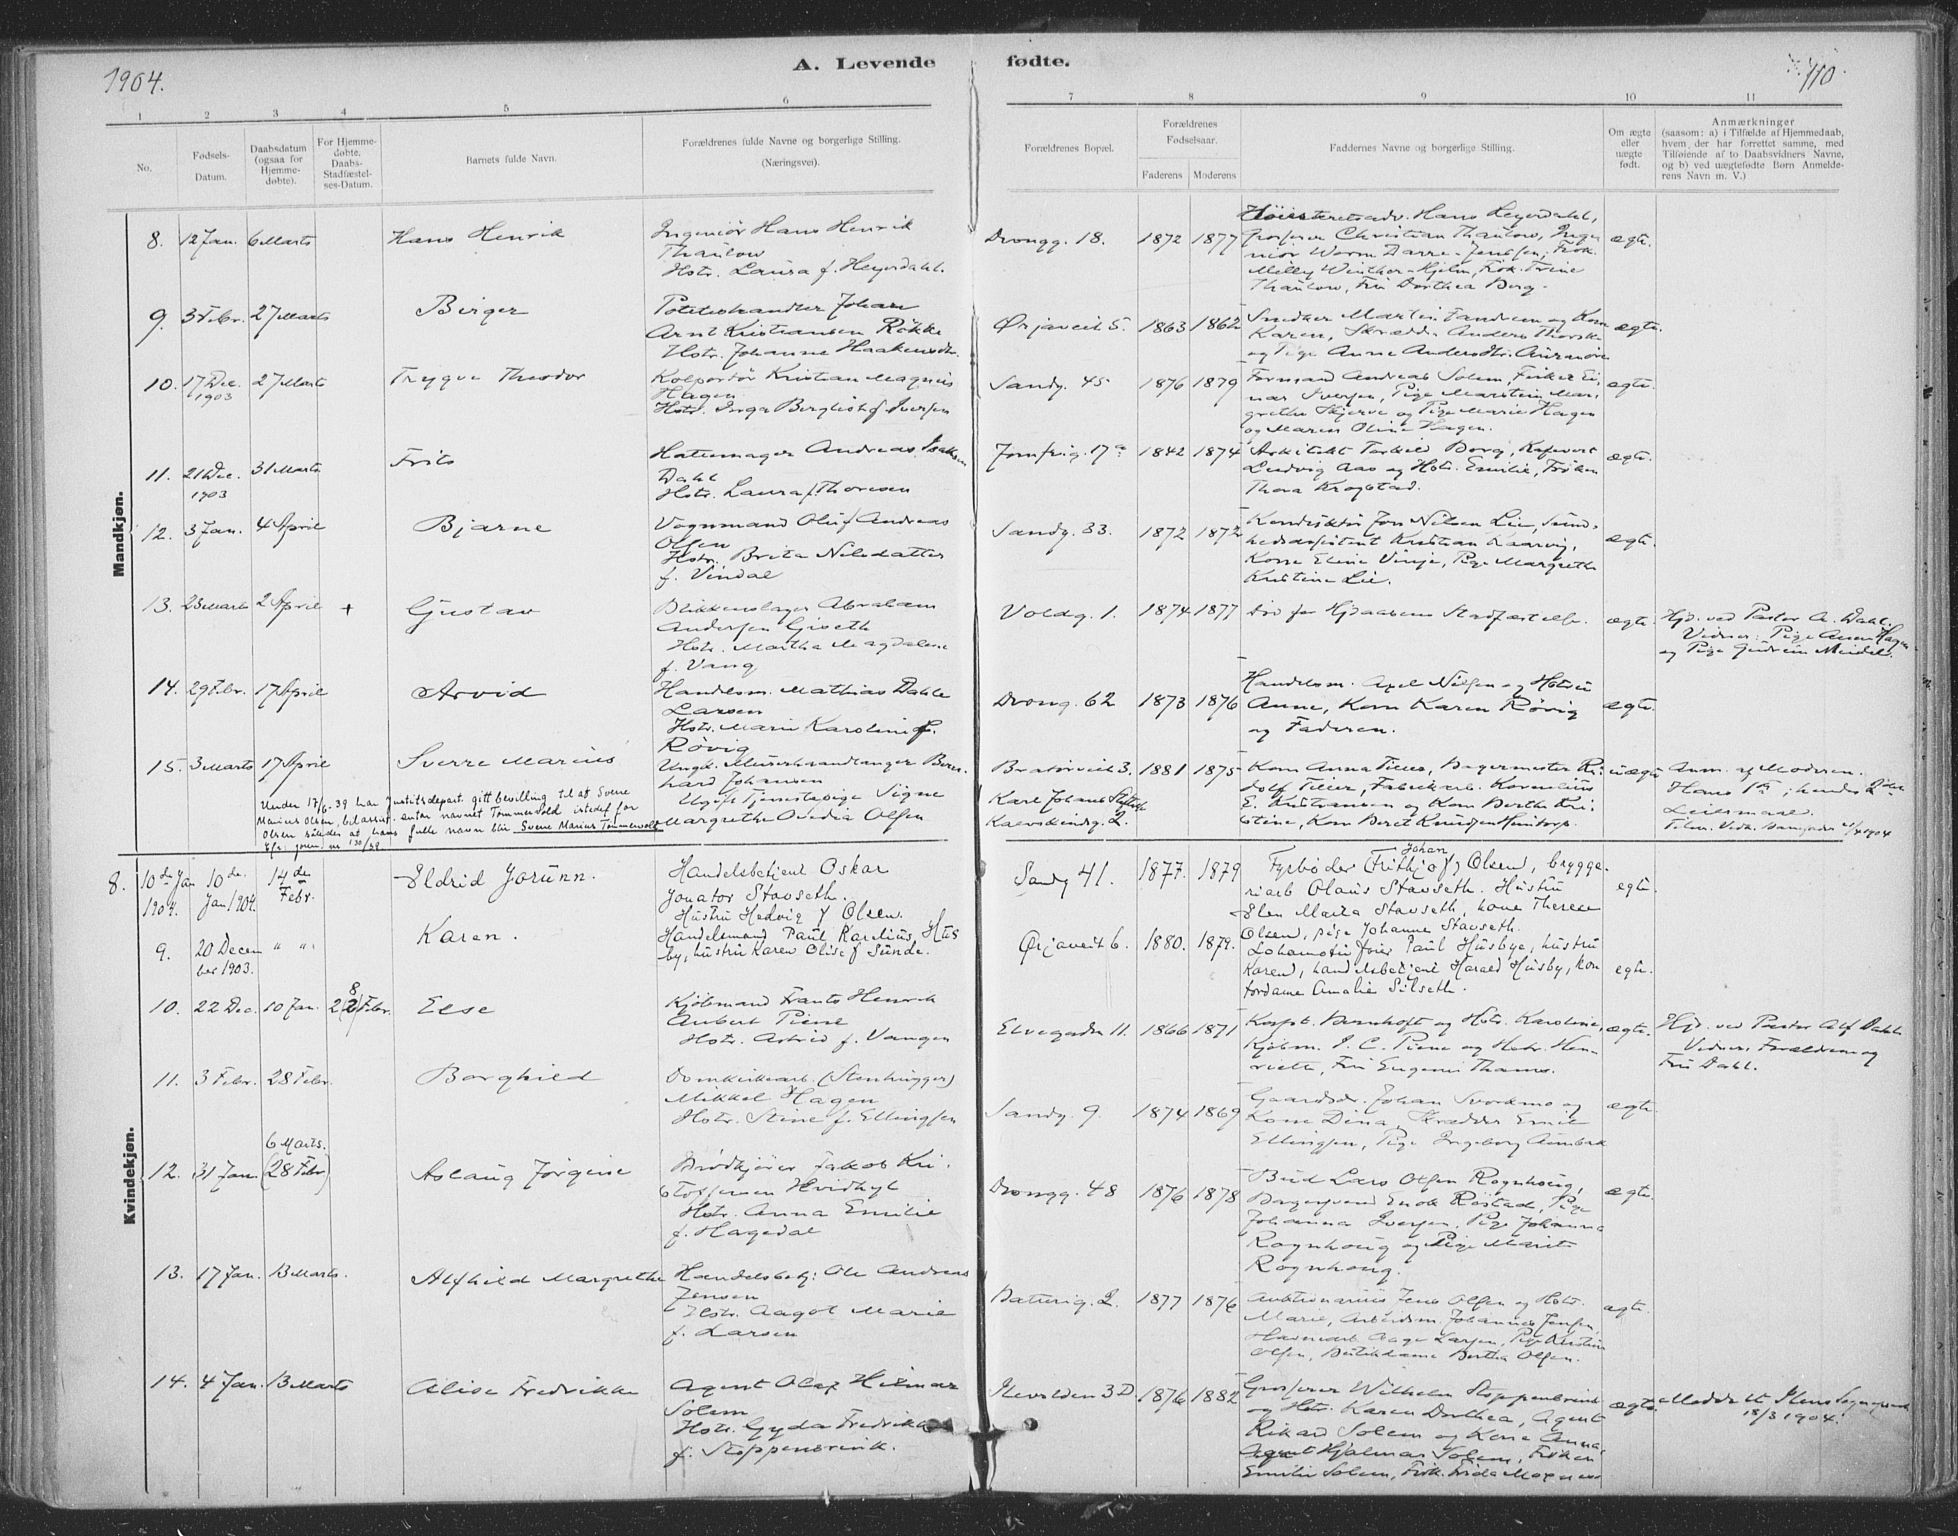 1904.
A. Levende fødte.
110.
1 2 3 4 5 6 7 8 9 10 11
No.
Fødsels-Datum.
Daabsdatum (ogsaa for Hjemme-døbte).
For Hjemme-døbte. Daabs-Stadfæstel-ses-Datum.
Barnets fulde Navn.
Forældrenes fulde Navne og borgerlige Stilling.
(Næringsvei).
Forældrenes Bopæl.
Forældrenes Fødselsaar.
Faderens Moderens
Faddernes Navne og borgerlige Stilling.
Om ægte eller uægte født.
Anmærkninger
(saasom: a) i Tilfælde af Hjemmedaab,
hvem der har forrettet samme, med
Tilføiende af to Daabsvidners Navne,
og b) ved uægtefødte Børn Anmelde-
rens Navn m. V.)
Mandkjøn.
8. 12 Jan. 6 Marts Hans Henrik
Ingeniør Hans Henrik
Thaulow
Hstr. Laura f. Heyerdahl.
Drongg. 18. 1872 1877
Høiesteretsadv. Hans Heyerdahl,
grosserer Christian Thaulow, Inge
niør Worm Darre-Jenssen, Frøk.
Milly Winther-Hjelm, Frøk. Trine
Thaulow, Fru Dorthea Berg.
ægte.
9. 3 Febr. 27 Marts Birger
Poteteshandler Johan
Arnt Kristiansen Røkke
Hstr. Johanne Haakensdtr.
Ørjaveit 5. 1863 1862
Snedker Martin Fandrem og Kone
Karen, Skrædd. Anders Thorske
og Pige Anne
ægte.
10. 17 Dec. 1903 27 Marts Trygve Theodor
Kolportør Kristian Magnus
Hagen
Hstr. Inga Bergliot f. Iversen
Sandg. 45 1876 1879
Formand Andreas Solem, Fisker Ei
nar Iversen, Pige Marstein Mar
grethe Skjerve og Pige Marie Hagen
og Maren Oline Hagen.
ægte.
11. 21 Dec. 1903 31 Marts Frits
Hattemager Andreas Isaksen
Dahl
Hstr. Laura f. Thoresen
Jomfrug. 17a 1842 1874
Arkitekt Torkild Borg, Kjøpvert
Ludvig Aas og Hstr. Emilie, Frøken
Thora Krogstad.
ægte.
12. 3 Jan. 4 April Bjarne
Vognmand Oluf Andreas
Olsen
Hstr. Brita Nilsdatter
f. Vindal
Sandg. 33. 1872 1872
Konduktør Jon Nilsen Lie, Sund-
hedsassistent Kristian Kaarvig,
Kone Eline Vinje, Pige Margrethe
Kristine Lie.
ægte.
13. 23 Marts 2 April + Gustav
Blikkenslager Abraham
Andersen Giseth
Hstr. Martha Magdalene
f. Vang
Voldg. 1. 1874 1877
Død før Hjdaabens Stadfæstelse.
ægte.
Hjd. ved Pastor A. Dahl.
Vidner: Pige Anna Hagen
og Pige Gudrun Meidel.
14. 29 Febr. 17 April Arvid
Handelsm. Mathias Dahle
Larsen
Hstr. Marie Karoline f.
Røvig
Drong. 62 1873 1876
Handelsm. Axel Nilsen og Hstru
Anne, Kone Karen Røvig
og Faderen.
ægte.
15. 3 Marts 17 April Sverre Marius
Ungk. Murerhaandlanger Bern
hard Johansen
Ugift Tjenestepige Signe
Margrethe Ovedia Olsen
Bratørveit 3. 1881 1875
Karl Johans Stiftelse
Kalvskindsg. 2.
Kone Anna Tiller, Bagermester Ru
dolf Tiller, Fabrikarb. Kornelius
E. Kristiansen og Kone Berthe Kri
stine, Kone Beret Knudsen
uægte
Anm. af Moderen.
Hans 1ste; hendes 2den
Leiermaal.
Under 17/6-39 har Justitsdepart. gitt bevilling til at Sverre
Marius Olsen, antar navnet Tømmervold istedet for
Olsen saaledes at hans fulle navn blir Sverre Marius Tømmervold
Cfr. journ. nr 130/39
Kvindekjøn.
8. 10de Jan 1904. 10de Jan 1904. 14de Febr. Eldrid Jorunn.
Handelsbetjent Oskar
Jonator Stavseth.
Hustru Hedvig f Olsen.
Sandg 41. 1877. 1879
Johan
Fyrbøder (Frithjof) Olsen, brygge-
riarb Olaus Stavseth. Hustru
Elen Marta Stavseth, kone Therese
Olsen, pige Johanne Stavseth.
egte.
9. 20 Decem ber 1903. " " Karen.
Handelsmand Paul Karelius Hus
by, hustru Karen Olise f Sunde.
Ørjaveit 6. 1880. 1879.
Lokomotivfører Paul Husbye, hustru
Karen, handelsbetjent Harald Husby, kon
tordame Amalie Silseth.
egte.
10. 22 Dec. 10 Jan. 28 Febr. Else
Kjøbmand Frants Henrik
Aubert Piene
Hstr. Astrid f. Vangen
Elvegaden 11. 1866 1871
Kaspt. Bernhoft og Hstr. Karoline,
Kjøbm. I. C. Piene og Hstr. Hen
riette, Fru Eugenie Thams.
ægte.
Hjd. ved Pastor Alf Dahl.
Vidner: Forældrene og
Fru Dahl.
11. 3 Febr. 28 Febr. Borghild
Domkirkearb. (Stenhugger)
Mikkel Hagen
Hstr. Stine f. Ellingsen
Sandg. 9. 1874 1869
Gaardbr. Johan Svorkmo og
Kone Dina, Skrædder Emil
Ellingsen, Pige Ingeborg Aunbak
ægte.
12. 31 Jan. 6 Marts. (28 Febr) Aslaug Jørgine
Brødkjører Jakob Kri
stoffersen Hvidhyl
Hstr. Anna Emilie
f. Hagedal
Drongg. 48 1876 1878
Bud Lars Olsen Rognhoug,
Bagersvend Enok Røstad, Pige
Johanna Iversen, Pige Johanna
Rognhoug og Pige Marit
Rognhoug.
ægte.
13. 17 Jan. 13 Marts. Alfhild Margrethe
Handelsbetj: Ole Andreas
Jensen
Hstr. Aagot Marie
f. Larsen
Batterig. 2. 1877 1876
Auktionarius Jens Olsen og Hstr.
Marie, Arbeidsm. Johannes Jensen,
Havnearb. Aage Larsen, Pige Kristine
Olsen, Butikdame Bertha Olsen.
ægte.
14. 4 Jan. 13 Marts Alise Fredrikke
Agent Olaf Hilmar
Solem
Hstr. Gyda Fredrikke
f. Stoppenbrink.
Ilevolden 3D 1876 1882
Grosserer Wilhelm Stoppenbrink
og Hstr. Karen Dorthea, Agent
Rikard Solem og Kone Anna,
Agent Hjalmar Solem, Frøken
Emilie Solem, Frøk. Frida
ægte.
Meddelt Ilens Sogneprest
18/3 1904.